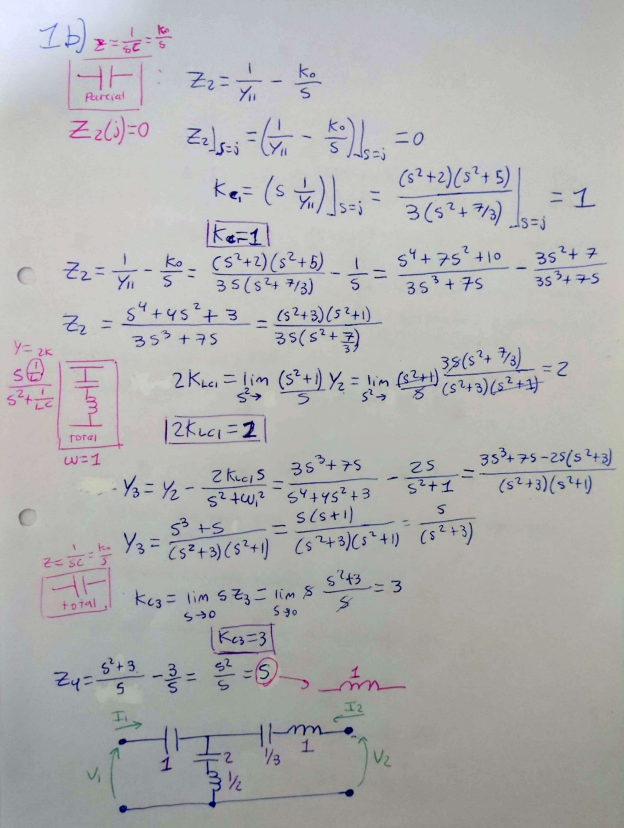 1b) Z = 1/SC = K₀/S
Parcial
: Z₂ = 1/Y₁₁ − K₀/S
Z₂(j)=0
Z₂⌋s=j = (1/Y₁₁ − K₀/S)⌋s=j = 0
Kc₁ = (S 1/Y₁₁)⌋s=j = (S²+2)(S²+5)/3(S²+7/3)⌋s=j = 1
Kc=1
Z₂ = 1/Y₁₁ − K₀/S = (S²+2)(S²+5)/3S(S²+7/3) − 1/S = S⁴+7S²+10/3S³+7S − 3S²+7/3S³+7S
Z₂ = S⁴+4S²+3/3S³+7S = (S²+3)(S²+1)/3S(S²+7/3)
Y = 2K
S(1/L)/S²+1/LC
total
ω=1
2KLC1 = lim S²→ (S²+1)/S Y₂ = lim S²→ (S²+1)/S 3S(S²+7/3)/(S²+3)(S²+1) = 2
2KLC1 = 2
Y₃ = Y₂ − 2KLC1 S/S²+ω₁² = 3S³+7S/S⁴+4S²+3 − 2S/S²+1 = 3S³+7S−2S(S²+3)/(S²+3)(S²+1)
Y₃ = S³+S/(S²+3)(S²+1) = S(S+1)/(S²+3)(S²+1) = S/(S²+3)
Z = 1/SC = K₀/S
total
KC3 = lim S→0 S Z₃ = lim S→0 S S²+3/S = 3
KC3=3
Z₄ = S²+3/S − 3/S = S²/S = S → 1
I₁ I₂
1 2 1/3 1
V₁ 1/2 V₂